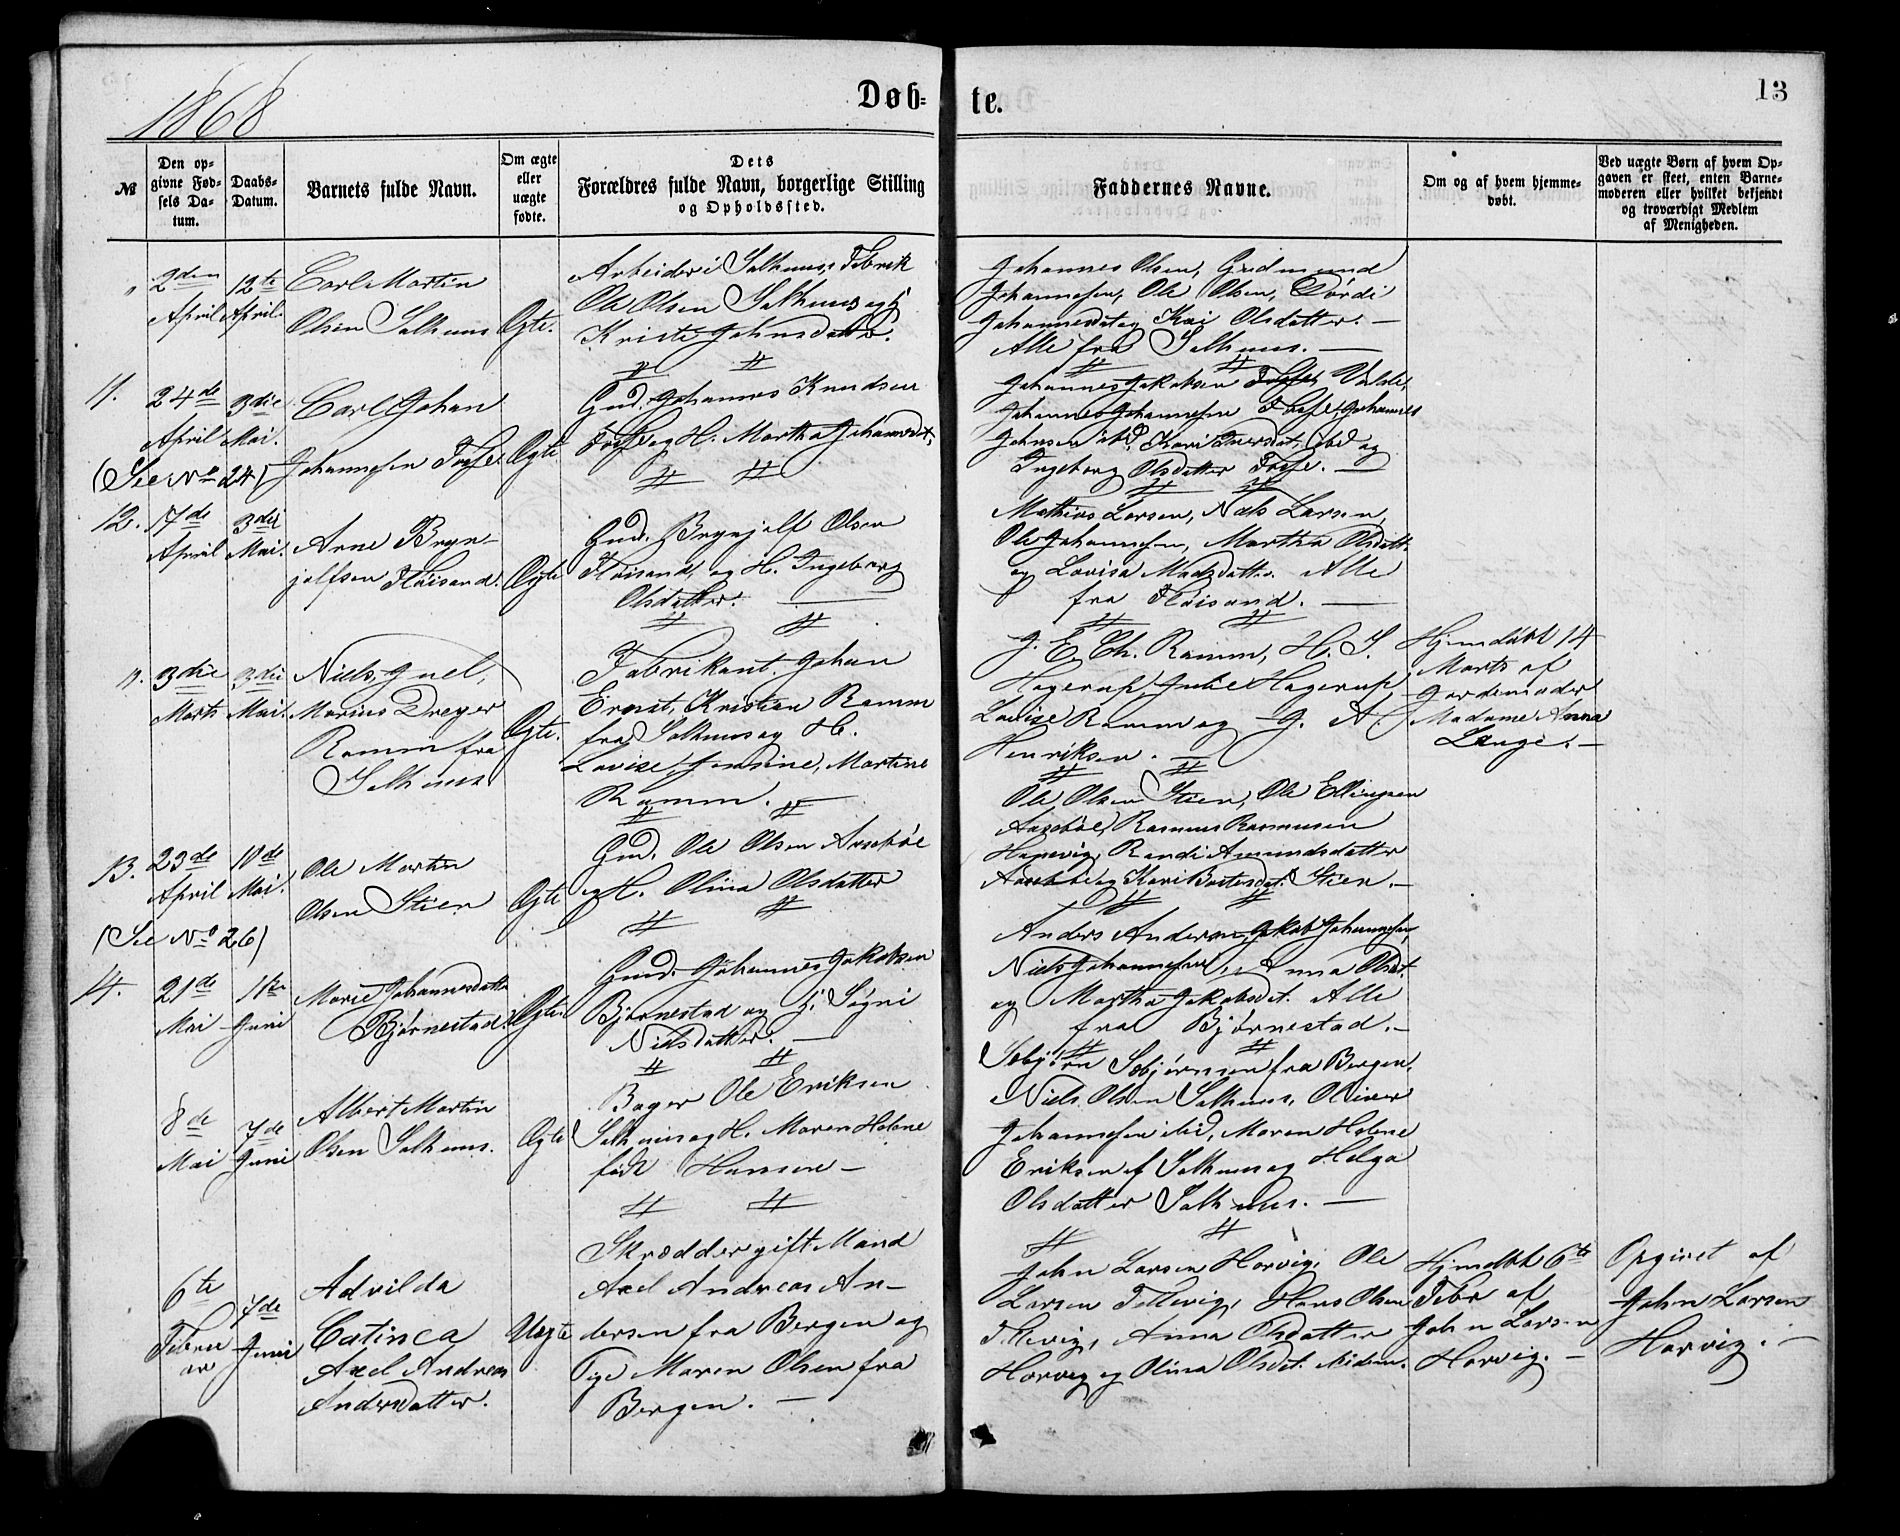 1868
Døb-
te.
13
№
Den op-
givne Fød-
sels Da-
tum.
Daabs-
Datum.
Barnets fulde Navn.
Om ægte
eller
uægte
fødte.
Dets
Forældres fulde Navn, borgerlige Stilling
og Opholdssted.
Faddernes Navne.
Om og af hvem hjemme-
døbt.
Ved uægte Børn af hvem Op-
gaven er skeet, enten Barne-
moderen eller hvilket bekjendt
og troværdigt Medlem
af Menigheden.
" 2den
April
12te
April.
Carl Martin
Olsen Salhuus
Ægte.
Arbeider i Salhuus Fabrik
Ole Olsen Salhuus og
Kristi Johnsdatter.
Johannes Olsen, Gudmund
Johannesen, Ole Olsen, Dordi
Johannesdat og Kari Olsdatter. —
Alle fra Salhuus. —
11. 24de
April
3die
Mai.
Carl Johan
Johannesen Tosse
Ægte
Gmd. Johannes Knudsen
Tosse og H. Martha Johannesdt.
Johannes Jakobsen
Johannes Johannesen Tosse, Johannes
Johnsen ibid, Kari ibid og
Ingeborg Olsdatter Tosse. —
(See No 24)
12. 17de
April
3die
Mai.
Arne Bryn-
jolfsen Haisand.
Ægte
Gmd. Brynjolf Olsen
og H. Ingeborg
Olsdatter. —
Mathias Larsen, Niels Larsen,
Ole Johannesen, Martha Olsdatt.
og Lovisa Madsdatter. Alle
fra
". 3die
Marts
3die
Mai.
Niels, Juel,
Marius Dreyer
Ramm fra
Salhuus
Ægte.
Fabrikant Johan
Ernst, Kristian Ramm
fra Salhuus og H.
Lovise, Jensine, Martine
Ramm.
J. E. Ch. Ramm, H. S.
Hagerup, Julie Hagerup
Lovise Ramm og J. A.
Henriksen. —
Hjemdøbt 14
Marts af
Jordemoder
Madame Anna
Lange. —
13. 23de
April
10de
Mai.
Ole Martin
Olsen Stien
Ægte
Gmd. Ole Olsen Aasebøe
og H. Olina Olsdatter
Ole Olsen Stien, Ole Ellingsen
Aasebøe, Rasmus Rasmusen
Randi Amundsdatter
Aasebø og Kari Stien. —
(See No 26)
14. 21de
Mai
1ste
Juni
Marie Johannesdatter
Bjørnestad.
Ægte.
Gmd. Johannes Jakobsen
Bjørnestad og H. Signi
Nielsdatter. —
Anders Andersen, Jakob Johannesen,
Niels Johannesen, Anna Olsdt.
og Martha Jakobsdt. Alle
fra Bjørnestad. —
8de
Mai
7de
Juni
Albert Martin
Olsen Salhuus.
Ægte
Bager Ole Eriksen
Salhuus og H. Maren Helene
født Hansen —
fra Bergen,
Niels Olsen Salhuus, Oliver
Johannesen ibid, Maren Helene
Eriksen af Salhuus og Helga
Olsdatter Salhuus. —
6te
Februar
7de
Juni
Advilda
Catinca
Axel Andreas
Andersdatter.
Uægte
Skrædder gift Mand
Axel Andreas An-
dersen fra Bergen og
Pige Maren Olsen fra
Bergen. —
John Larsen Horvig, Ole
Larsen Tellevig, Hans Olsen
Tellevig, Anna Olsdatter
Horvig og Olina Olsdt. ibidem.
Hjemdøbt 6te
Febr af
John Larsen
Horvig. —
Opgivet af
John Larsen
Horvig. —